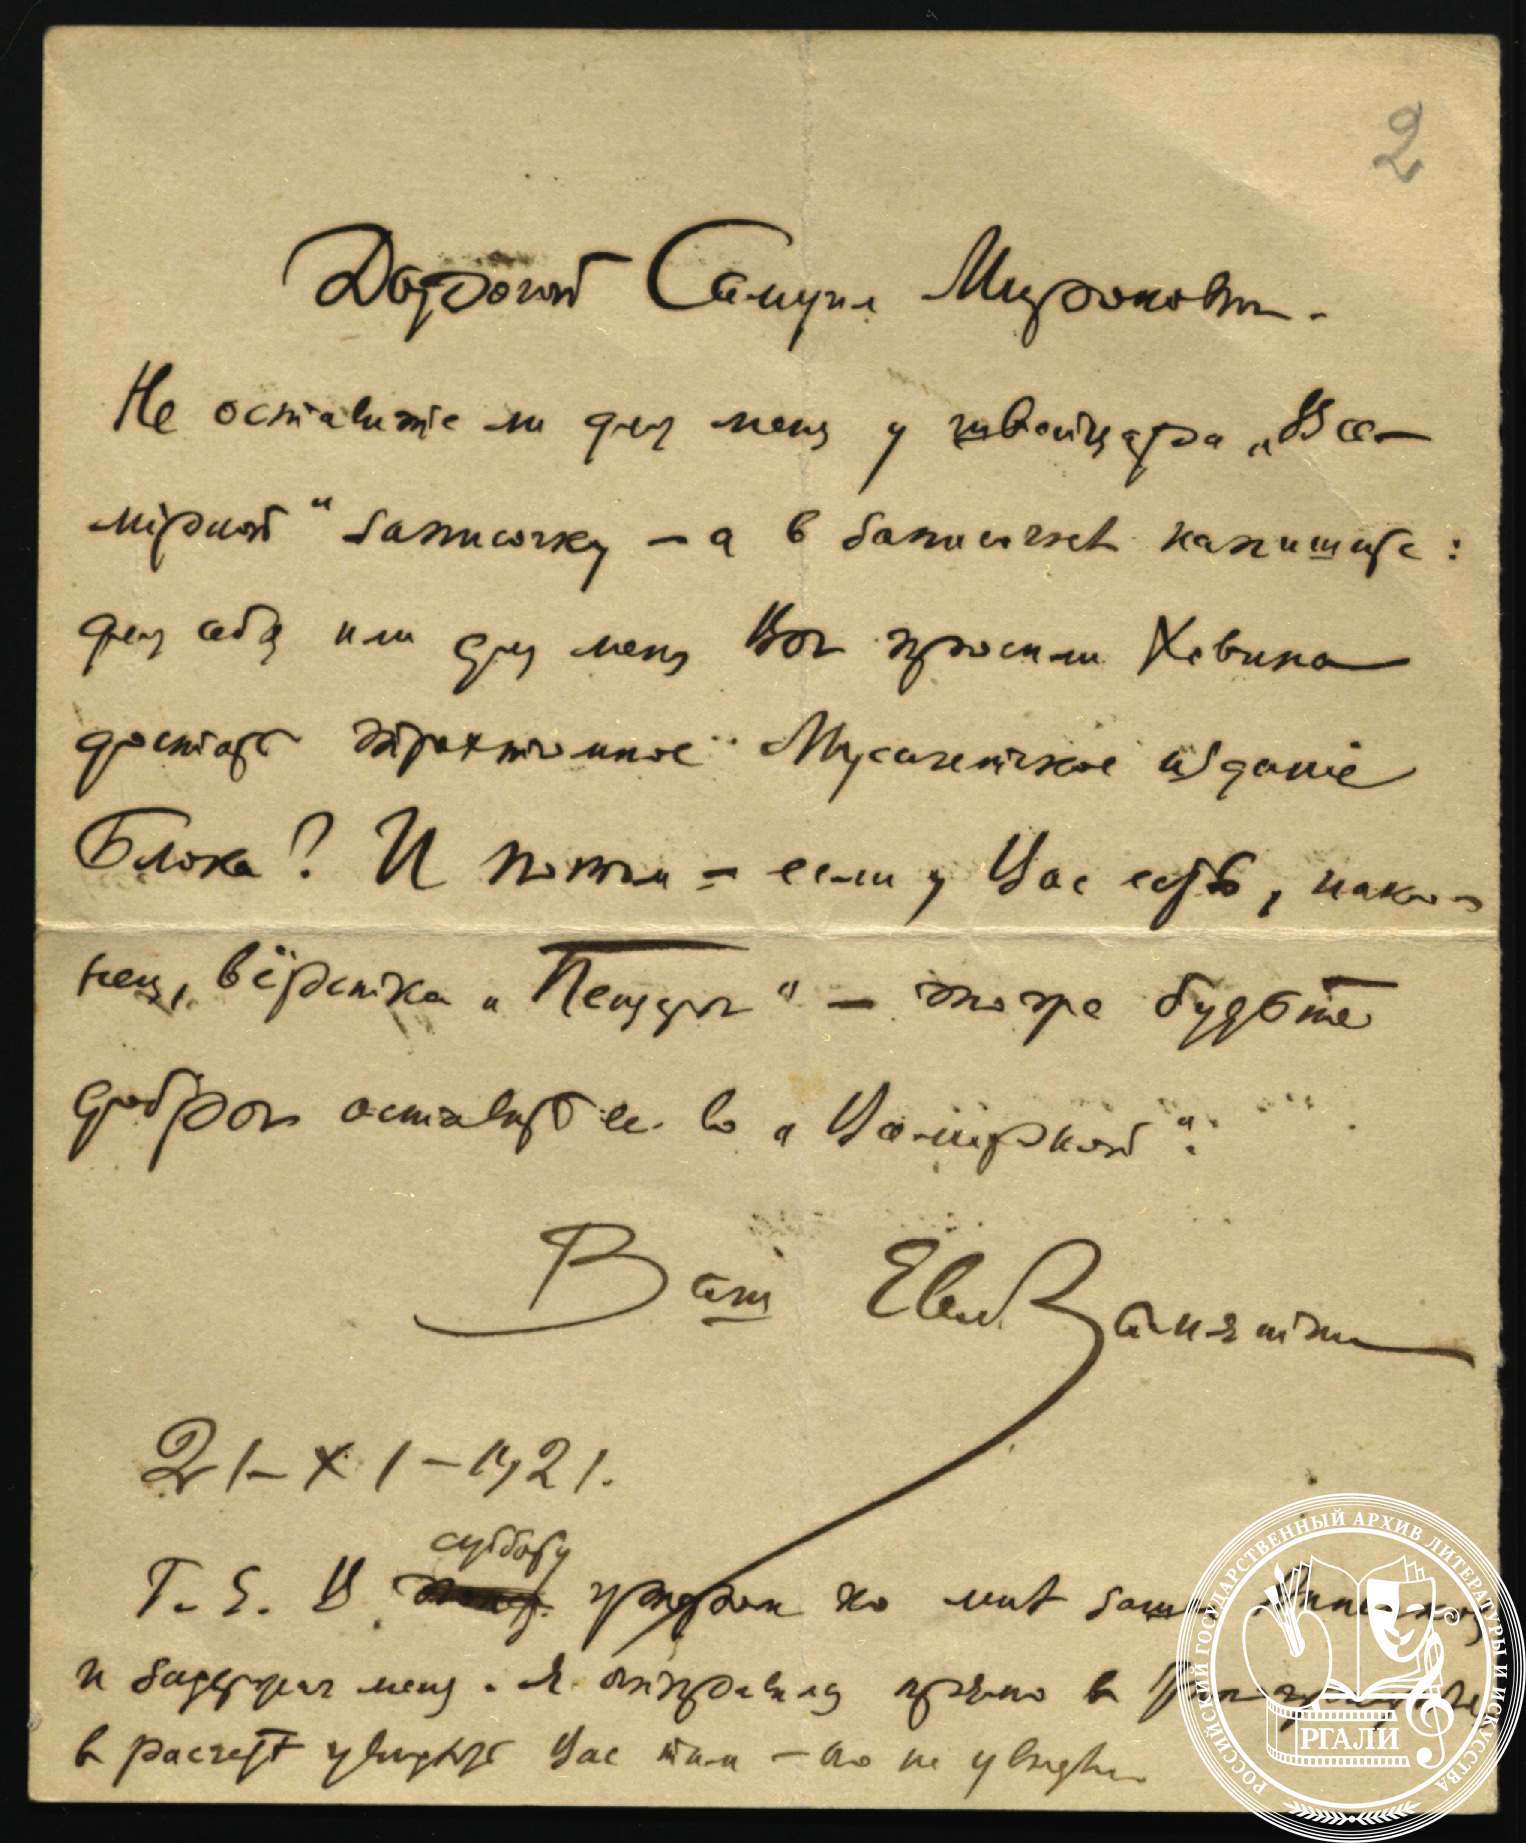 2
Дорогой Самуил Миронович.
Не оставите ли для меня у швейцара „Все-
мірной" записочку – а в записочкѣ напишите:
для себя или для меня Вы просили Ховина
достать трехтомное Мусагетское изданіе
Блока? И потом – если у Вас есть, нако-
нец, вёрстка „Пещеры" – тоже будьте
добры оставить ее во „Всемірной".
Ваш Евг. Замятин
21–XI–1921.
Т. Е. В субботу пришли ко мнѣ
и задержали меня. Я отправился прямо в
в расчетѣ увидѣть Вас там – но не увидѣл.
РОССИЙСКИЙ ГОСУДАРСТВЕННЫЙ АРХИВ ЛИТЕРАТУРЫ И ИСКУССТВА
РГАЛИ